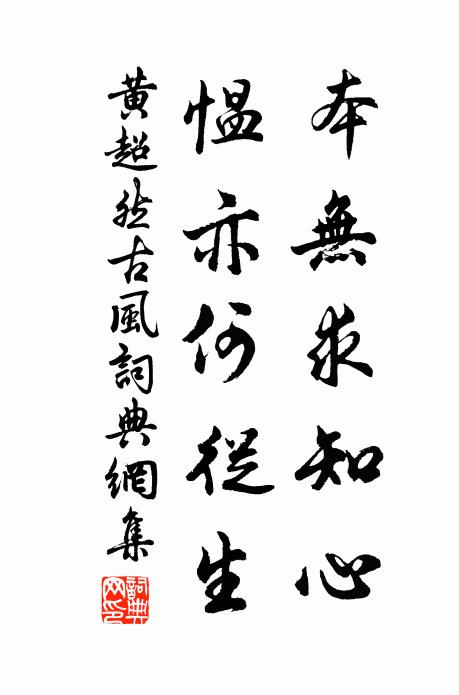 本無求知心
愠亦何從生
黄超然古風詞典網集
詞典網印